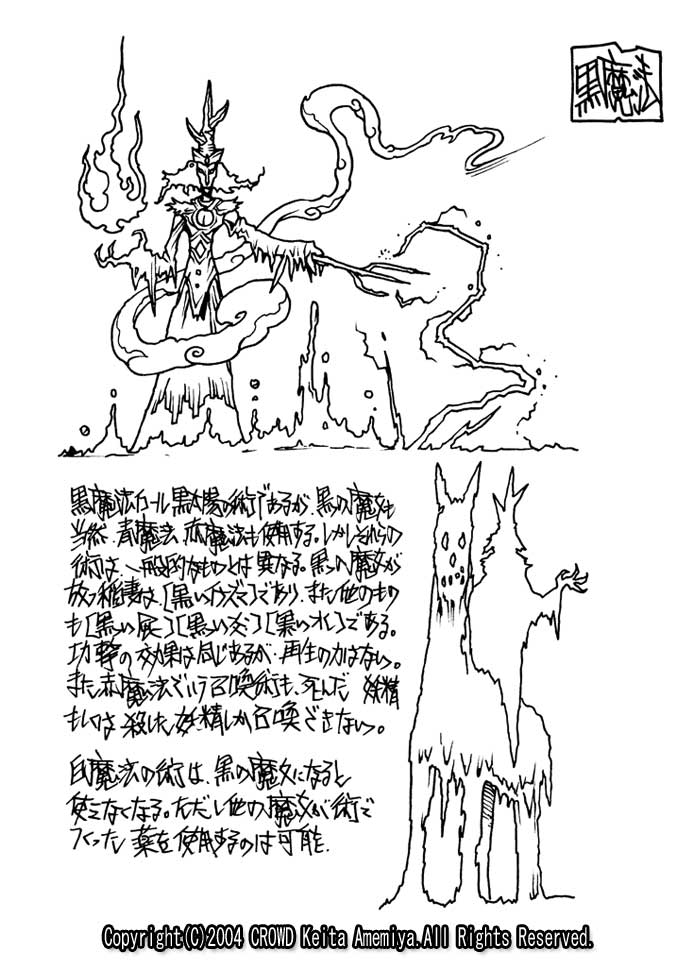 黒魔法
黒魔法カール黒太陽の術であるが、黒の魔女も
当然、青魔法、赤魔法も使用する。しかしそれらの
術は、一般的なものとは異なる。黒の魔女が
放つ稲妻は、[黒いイナズマ]であり、また他のもの
も[黒い灰][黒い炎][黒い水]である。
攻撃の効果は同じであるが、再生の力はない。
また赤魔法でいう召喚術も、死んだ 妖精
もしくは 殺した妖精しか召喚できない。
白魔法の術は、黒の魔女になると
使えなくなる。ただし他の魔女が術で
つくった 薬を使用するのは可能.
Copyright(C)2004 CROWD Keita Amemiya.All Rights Reserved.